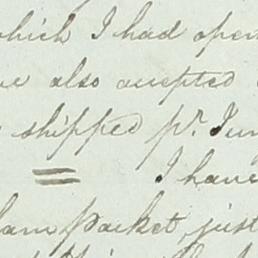 which I had open
also accepted
shipped pr. Jun
= I have
ham Packet, just